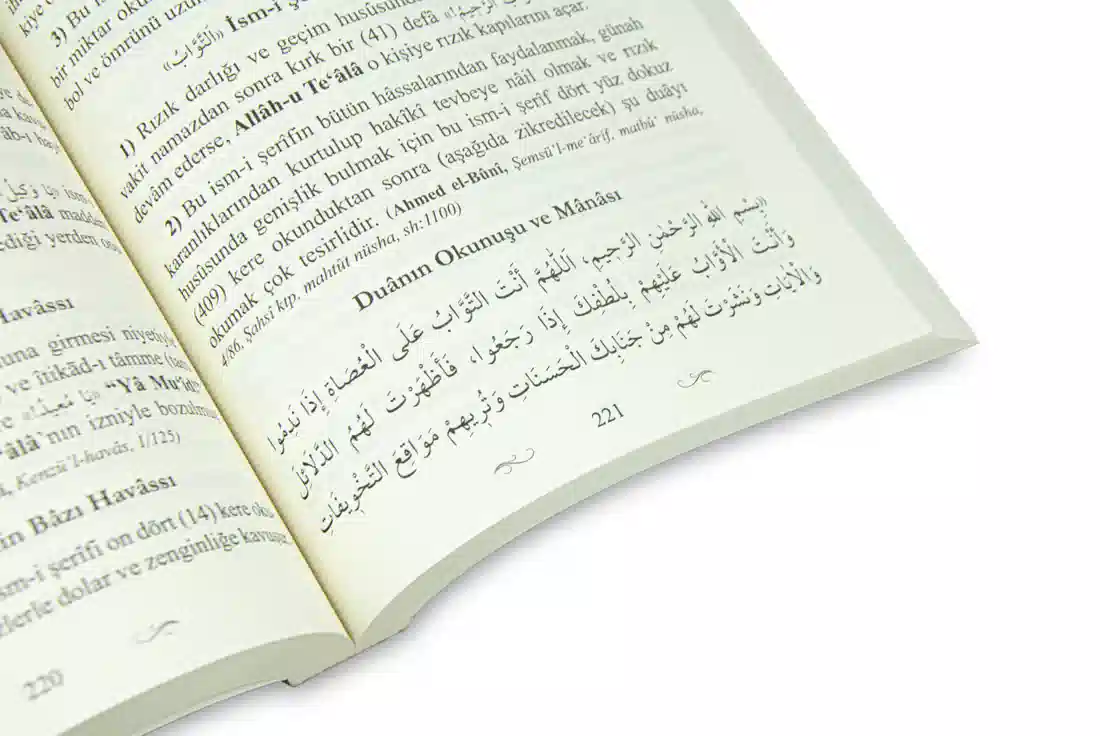 kiye
3) Bu
bir miktar
bol ve ömrünü
«اَلتَّوَّابُ» İsm-i
1) Rızık darlığı ve geçim husûsunda
vakit namazdan sonra kırk bir (41) defâ
devâm ederse, Allâh-u Te‘âlâ o kişiye rızık kapılarını açar.
2) Bu ism-i şerîfin bütün hâssalarından faydalanmak, günah
karanlıklarından kurtulup hakîkî tevbeye nâil olmak ve rızık
husûsunda genişlik bulmak için bu ism-i şerîf dört yüz dokuz
(409) kere okunduktan sonra (aşağıda zikredilecek) şu duâyı
okumak çok tesirlidir. (Ahmed el-Bûnî, Şemsü’l-me‘ârif, matbû‘ nüsha,
4/86, Şahsî ktp. mahtût nüsha, sh:1100)
Duânın Okunuşu ve Mânâsı
«بِسْمِ اللّٰهِ الرَّحْمٰنِ الرَّحِيمِ، اَللّٰهُمَّ أَنْتَ التَّوَّابُ عَلَى الْعُصَاةِ إِذَا نَدِمُوا
وَأَنْتَ الْأَوَّابُ عَلَيْهِمْ بِلُطْفِكَ إِذَا رَجَعُوا، فَأَظْهَرْتَ لَهُمُ الدَّلَائِلَ
وَالْآيَاتِ وَنَشَرْتَ لَهُمْ مِنْ جَنَابِكَ الْحَسَنَاتِ وَتُرِيهِمْ مَوَاقِعَ التَّخْوِيفَاتِ
221
«يَا وَكِيلُ
Te‘âlâ
ediği yerden
Havâssı
una girmesi niyetiyle
ve îtikâd-ı tâmme
«يَا مُعِيدُ» “Yâ Mu‘îd”
‘âlâ`nın izniyle
Kenzü’l-havâs, 1/125)
in Bâzı Havâssı
sm-i şerîfi on dört (14) kere
dolar ve zenginliğe
220